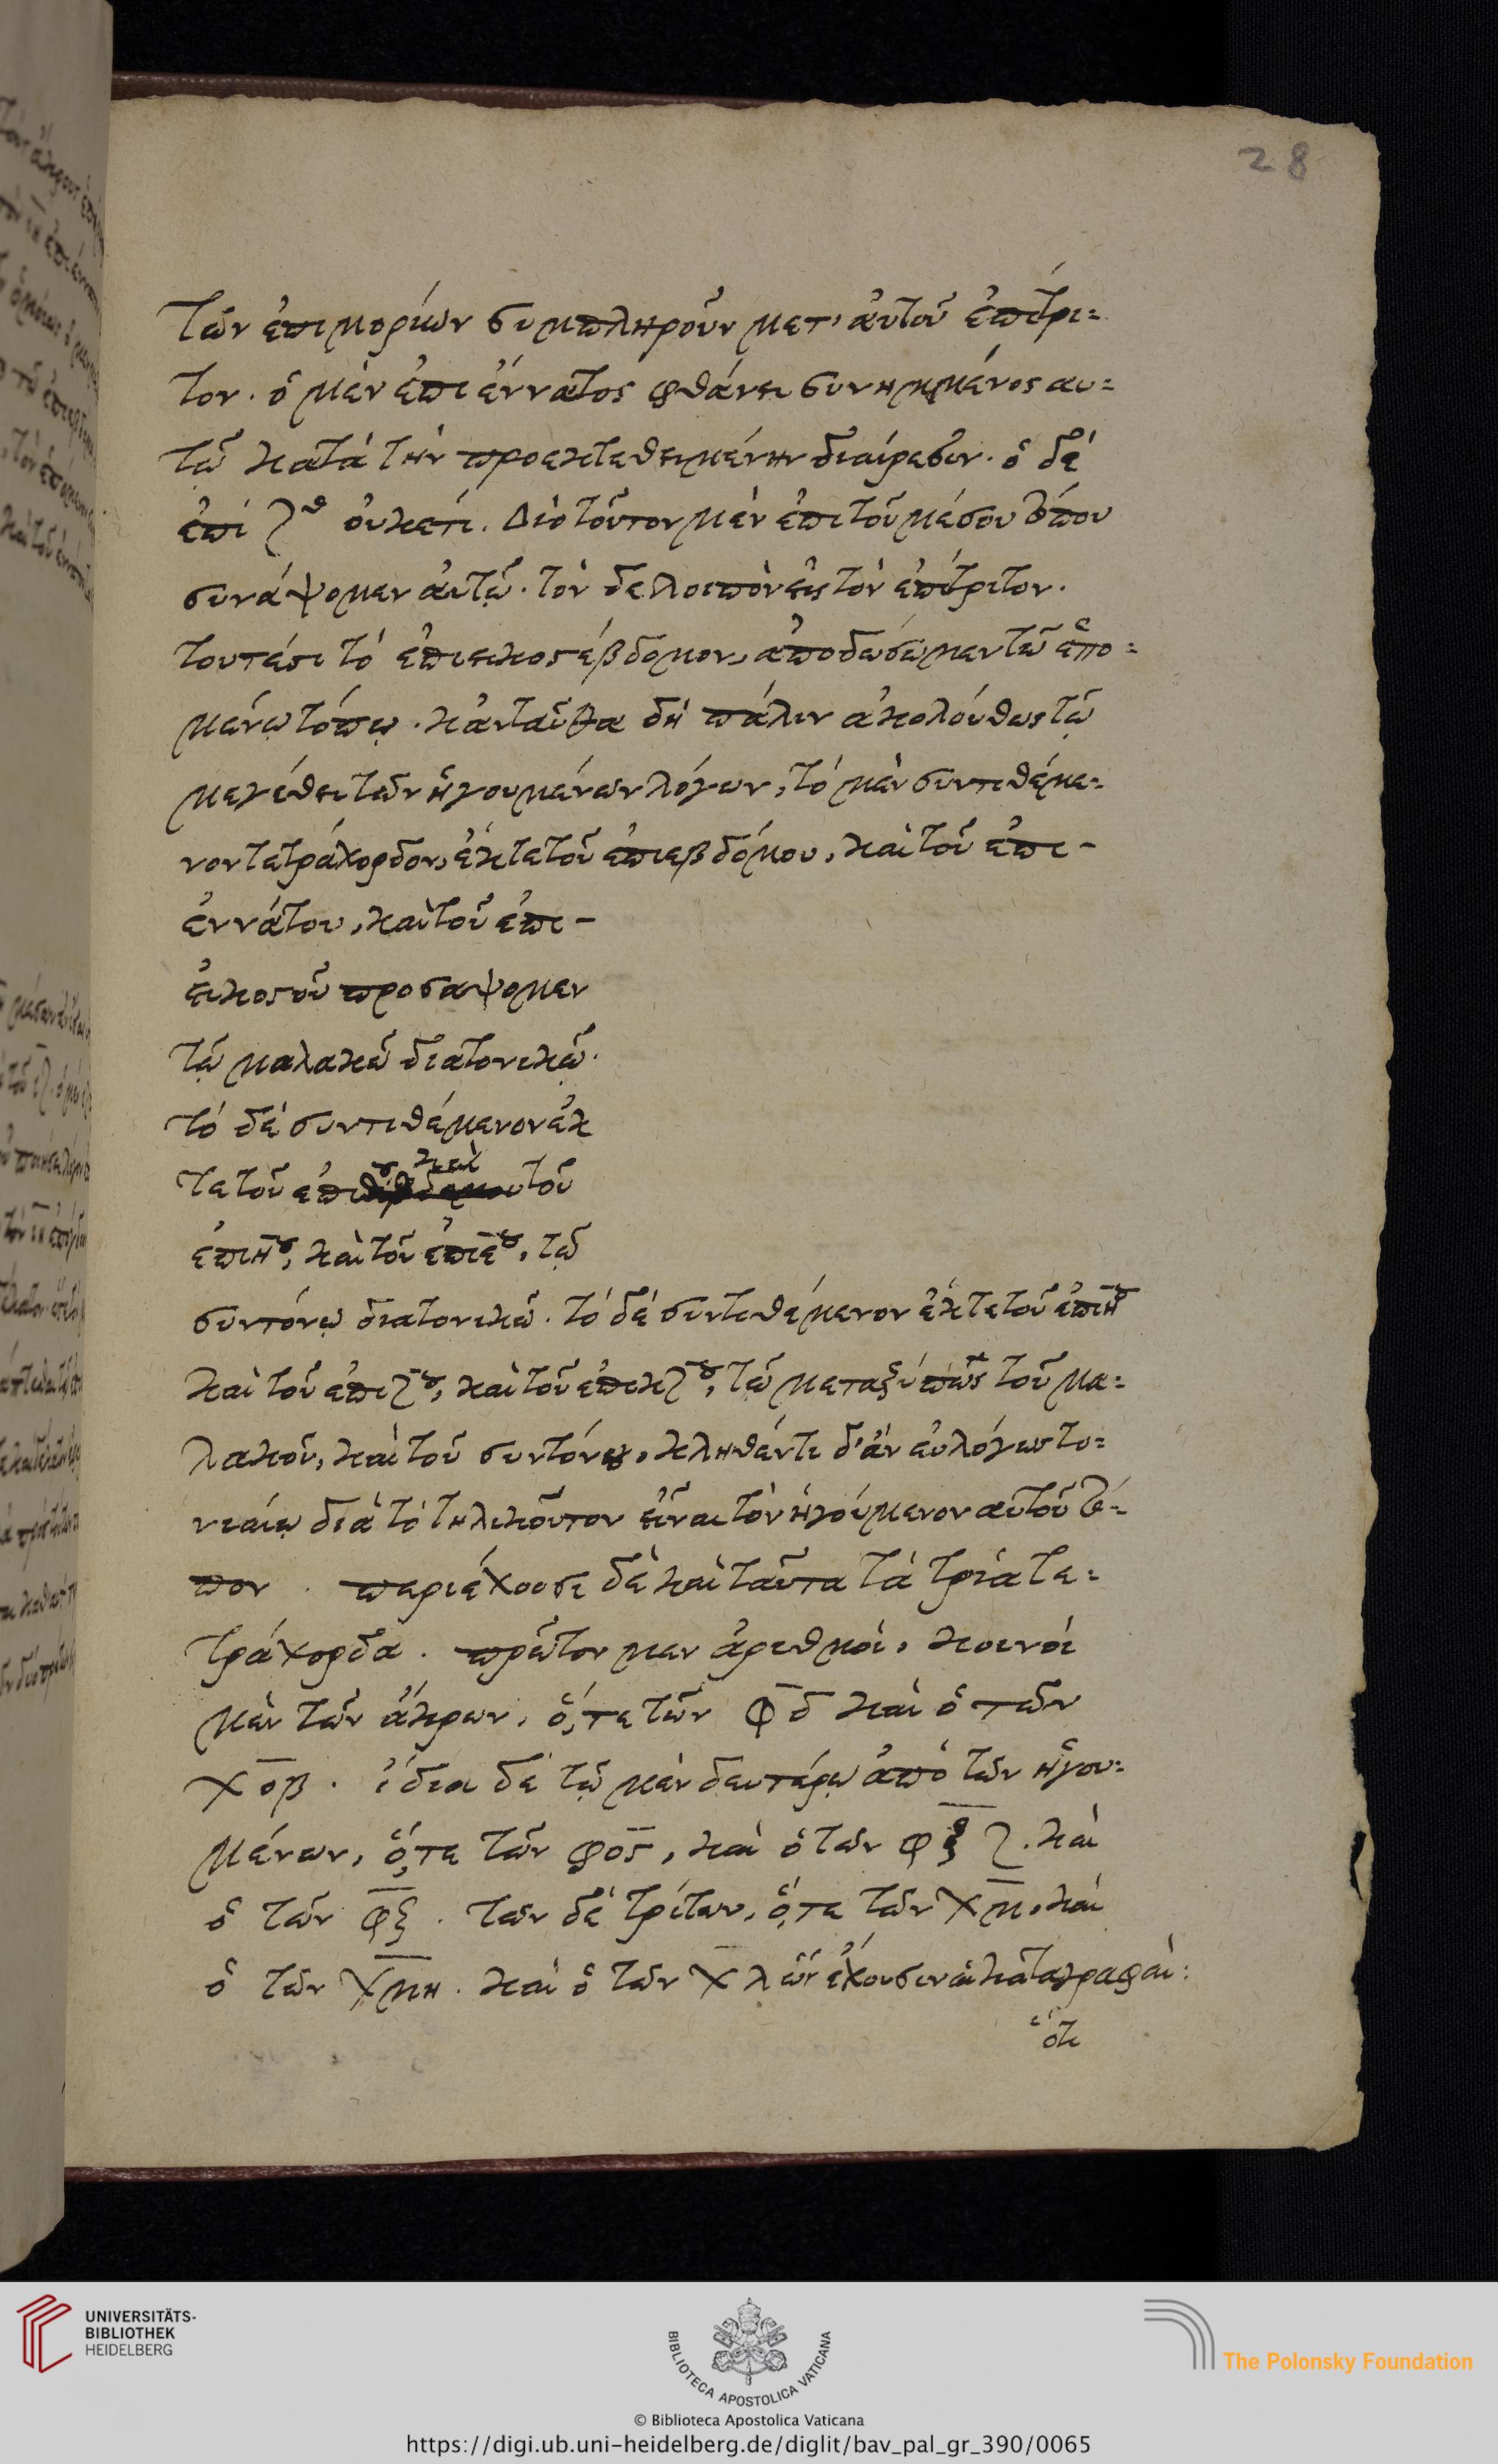 28
τῶν ἐπιμορίων συμπληροῦν μετ' αὐτοῦ ἐπίτρι-
τον. ὁ μὲν ἐπιέννατος φθάνει συνημμένος αυ-
τῷ κατὰ τὴν προεκτεθειμένην διαίρεσιν. ὁ δὲ
ἐπὶ ζ^ος οὐκέτι. Διὸ τοῦτον μὲν ἐπὶ τοῦ μέσου τόπου
συνάψομεν αὐτῷ. τὸν δε λοιπὸν εἰς τὸν ἐπίτριτον.
τουτέστι τὸ ἐπιεικοστέβδομον, ἀποδώσωμεν τῷ ἑπο-
μένῳ τόπῳ. κἀνταῦθα δὴ πάλιν ἀκολούθως τῷ
μεγέθει τῶν ἡγουμένων λόγων, τὸ μὲν συντιθέμε-
νον τετράχορδον, ἔκ τε τοῦ ἐπιεβδόμου, καὶ τοῦ ἐπι-
εννάτου, καὶ τοῦ ἐπι-
εικοστοῦ προσαψομεν
τῷ μαλακῷ διατονικῷ.
τὸ δὲ συντιθέμενον ἔκ
τε τοῦ ἐπιθ^ου καὶ τοῦ
ἐπιη^ου, καὶ τοῦ ἐπιιε^ου, τῷ
συντόνῳ διατονικῷ. τὸ δὲ συντιθέμενον ἔκ τε τοῦ ἐπιη^ου
καὶ τοῦ ἐπιζ^ου, καὶ τοῦ ἐπικζ^ου, τῷ μεταξύ πως τοῦ μα-
λακοῦ, καὶ τοῦ συντόνου. κληθέντι δ' ἂν εὐλόγως το-
νιαίῳ διὰ τὸ τηλικοῦτον εἶναι τὸν ἡγούμενον αὐτοῦ τό-
πον. περιέχουσι δὲ καὶ ταῦτα τὰ τρία τε-
τράχορδα. πρῶτον μεν ἀριθμοὶ, κοινοὶ
μὲν τῶν ἄκρων, ὅ, τε τῶν φδ καὶ ὁ τῶν
χοβ. ἴδιοι δὲ τῷ μὲν δευτέρῳ ἀπὸ τῶν ἡγου-
μένων, ὅ, τε τῶν φος, καὶ ὁ τῶν φξζ. καὶ
ὁ τῶν φξ. τῶν δὲ τρίτων, ὅ, τε τῶν χμ, καὶ
ὁ τῶν χμη. καὶ ὁ τῶν χλ ὧν ἔχουσιν αἱ καταγραφαί:
ὅτι
UNIVERSITÄTS-
BIBLIOTHEK
HEIDELBERG
BIBLIOTECA APOSTOLICA VATICANA
The Polonsky Foundation
© Biblioteca Apostolica Vaticana
https://digi.ub.uni-heidelberg.de/diglit/bav_pal_gr_390/0065